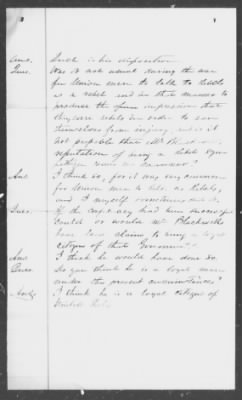 Ans. Such is his disposition
Ques. Was it not usual during the war
for Union men to talk to Rebels
as a rebel and in that manner to
produce the impression that
they were rebels in order to
themselves from injury, and is it
not possible that Mr
reputation of being a rebel
in that manner?
Ans I think so, for it was very common
for Union men to talk as Rebels,
and I myself sometimes did it.
Ques. If the confederacy had been successful
could or would Mr Blackwell
have laid claims to being a loyal
citizen of that Government?
Ans I think he would have done so.
Ques. Do you think he is a loyal man
under the present circumstances?
Ans I think he is a loyal citizen of
United States